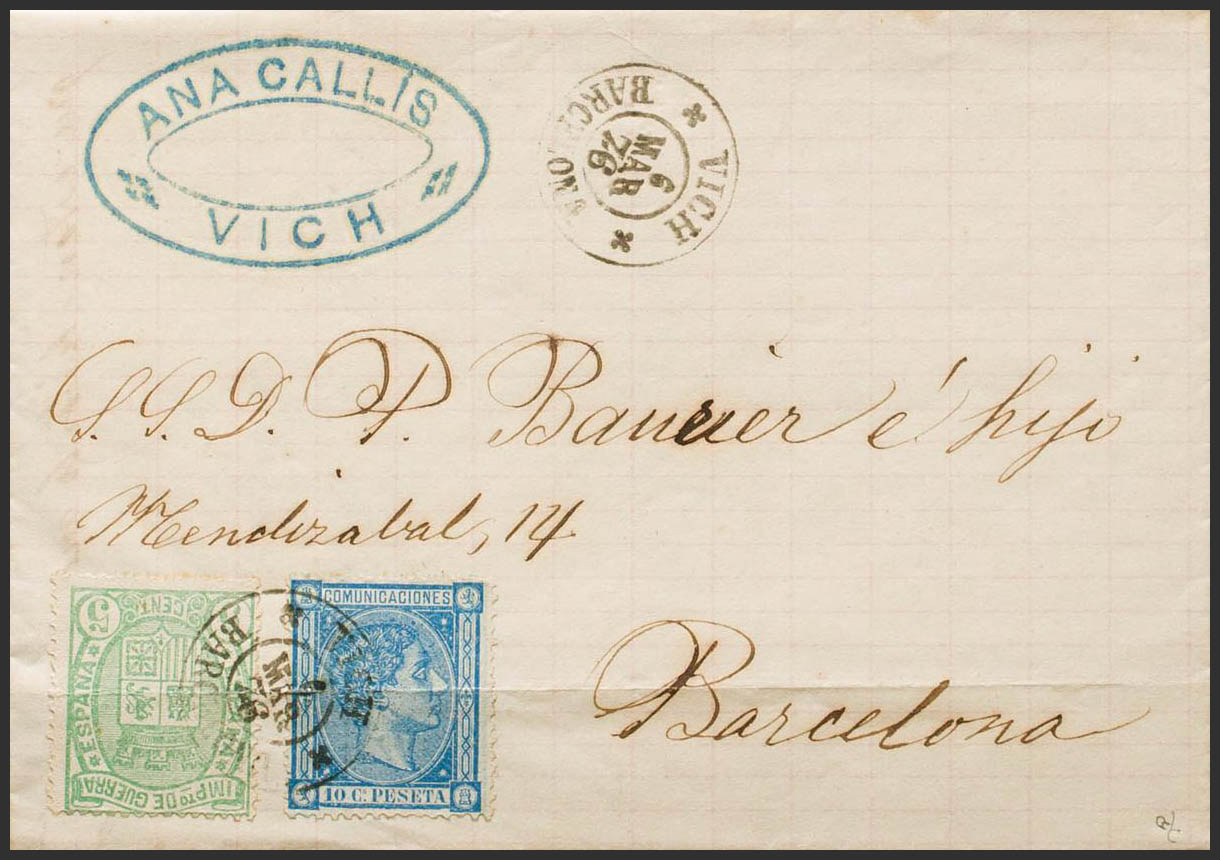 ANA CALLÍS
VICH
VICH
6
MAR
76
BARCELONA
S.S.D. P. Baurier é hijo
Mendizabal, 14
Barcelona
5
CENT
ESPAÑA
IMPTO DE GUERRA
BARC
MAR
VICH
COMUNICACIONES
10 C. PESETA